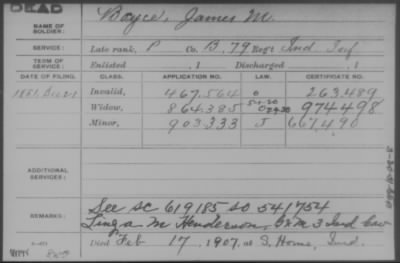 DEAD
NAME OF SOLDIER: Boyce, James M.
SERVICE: Late rank, P Co. B, 79 Regt Ind Inf
TERM OF SERVICE: Enlisted , 1 Discharged , 1
DATE OF FILING. CLASS. APPLICATION NO. LAW. CERTIFICATE NO.
1881, Dec 21 Invalid, 467.564 o 263.489
Widow, 864.385 974498
Minor, 903.333 J 667,490
ADDITIONAL SERVICES:
REMARKS: See SC 619185 SO 541754
M Henderson, M 3 Ind Cav
Died Feb 17, 1907, at S, Home, Ind.